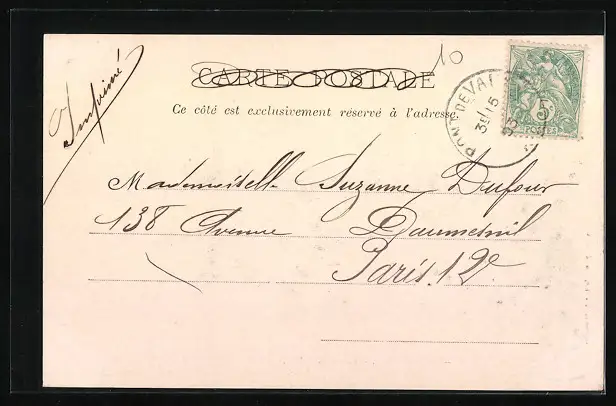 Imprimé
10
CARTE POSTALE
Ce côté est exclusivement réservé à l'adresse.
PONT DE VAU
3E 15
5c
POSTES
Mademoiselle Suzanne Dufour
138 Avenue Daumesnil
Paris. 12e